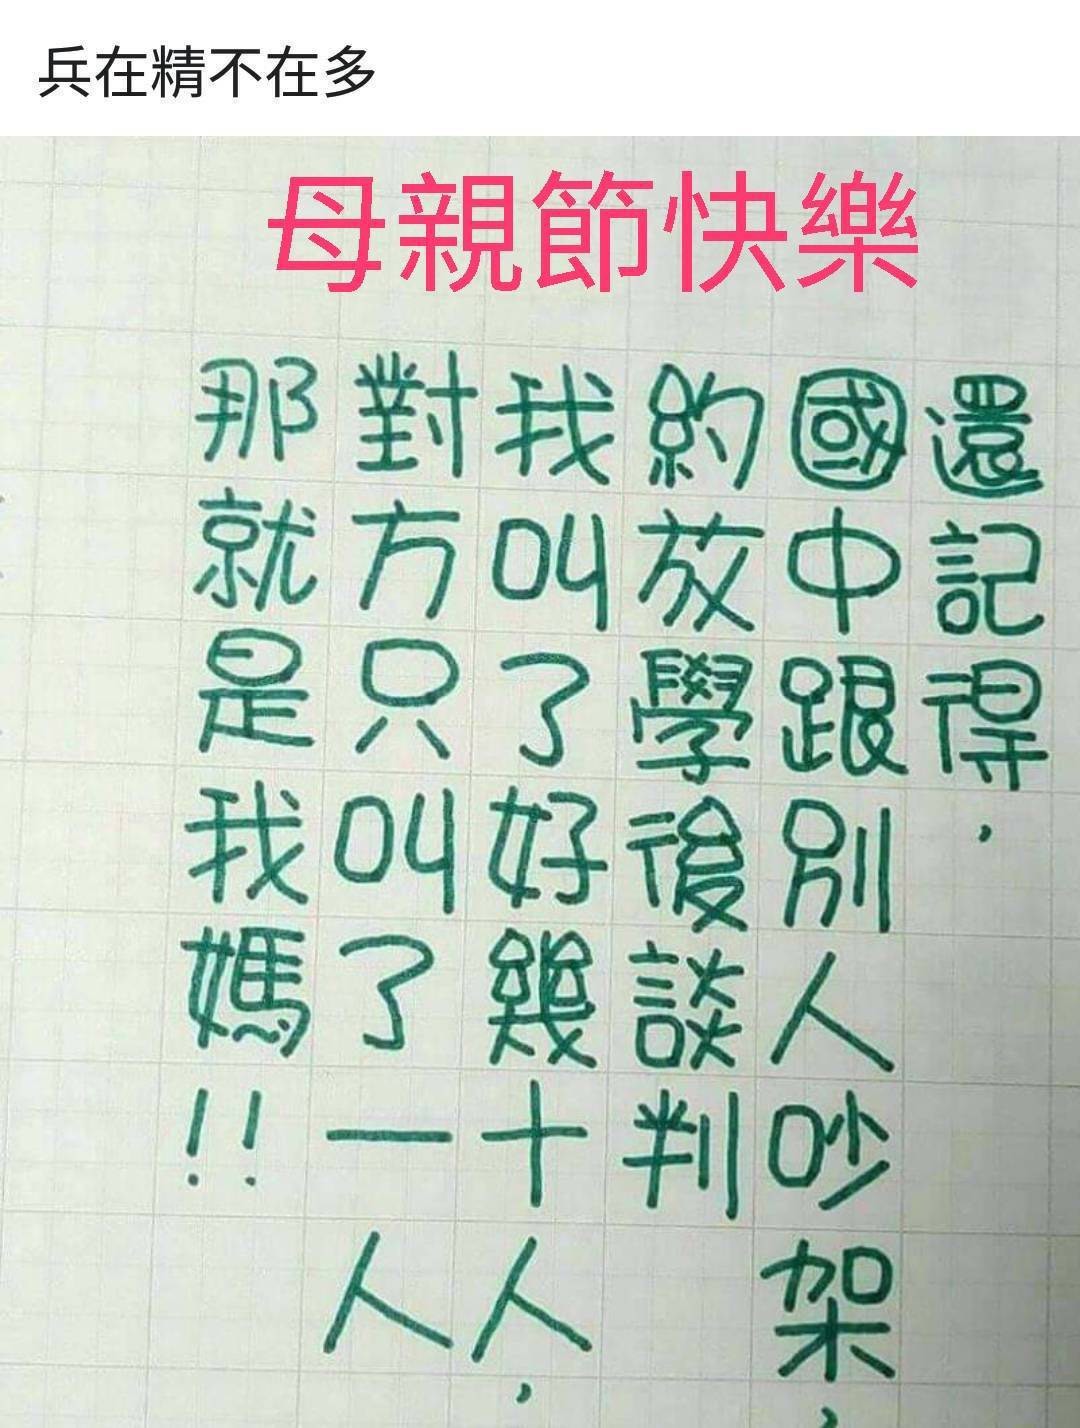 兵在精不在多
母親節快樂
還記得,
國中跟別人吵架,
約放學後談判
我叫了好幾十人,
對方只叫了一人
那就是我媽!!